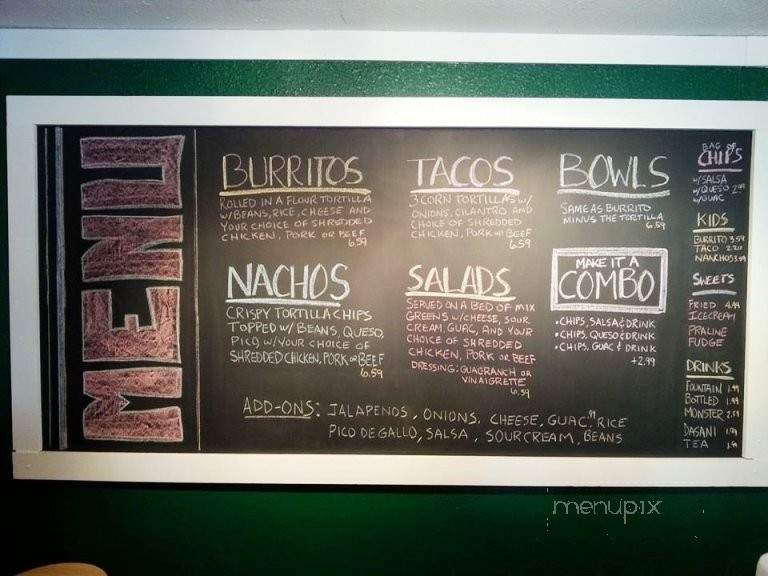 MENU
BURRITOS
ROLLED IN A FLOUR TORTILLA
W/BEANS, RICE, CHEESE AND
YOUR CHOICE OF SHREDDED
CHICKEN, PORK OR BEEF
6.59
TACOS
3 CORN TORTILLAS W/
ONIONS, CILANTRO AND
CHOICE OF SHREDDED
CHICKEN, PORK OR BEEF
6.59
BOWLS
SAME AS BURRITO
MINUS THE TORTILLA
6.59
NACHOS
CRISPY TORTILLA CHIPS
TOPPED W/ BEANS, QUESO,
PICO, W/YOUR CHOICE OF
SHREDDED CHICKEN, PORK OR BEEF
6.59
SALADS
SERVED ON A BED OF MIX
GREENS W/CHEESE, SOUR
CREAM, GUAC, AND YOUR
CHOICE OF SHREDDED
CHICKEN, PORK OR BEEF
DRESSING: GUACRANCH OR
VINAIGRETTE
6.59
MAKE IT A
COMBO
• CHIPS, SALSA & DRINK
• CHIPS, QUESO & DRINK
• CHIPS, GUAC & DRINK
+2.99
ADD-ONS: JALAPENOS, ONIONS, CHEESE, GUAC .99, RICE
PICO DE GALLO, SALSA, SOUR CREAM, BEANS
BAG OF
CHIPS
W/SALSA
W/QUESO 2.99
W/GUAC
KIDS
BURRITO 3.59
TACO
NANCHOS
SWEETS
FRIED 4.99
ICECREAM
PRALINE
FUDGE
DRINKS
FOUNTAIN 1.99
BOTTLED 1.99
MONSTER
DASANI 1.99
TEA
menupix